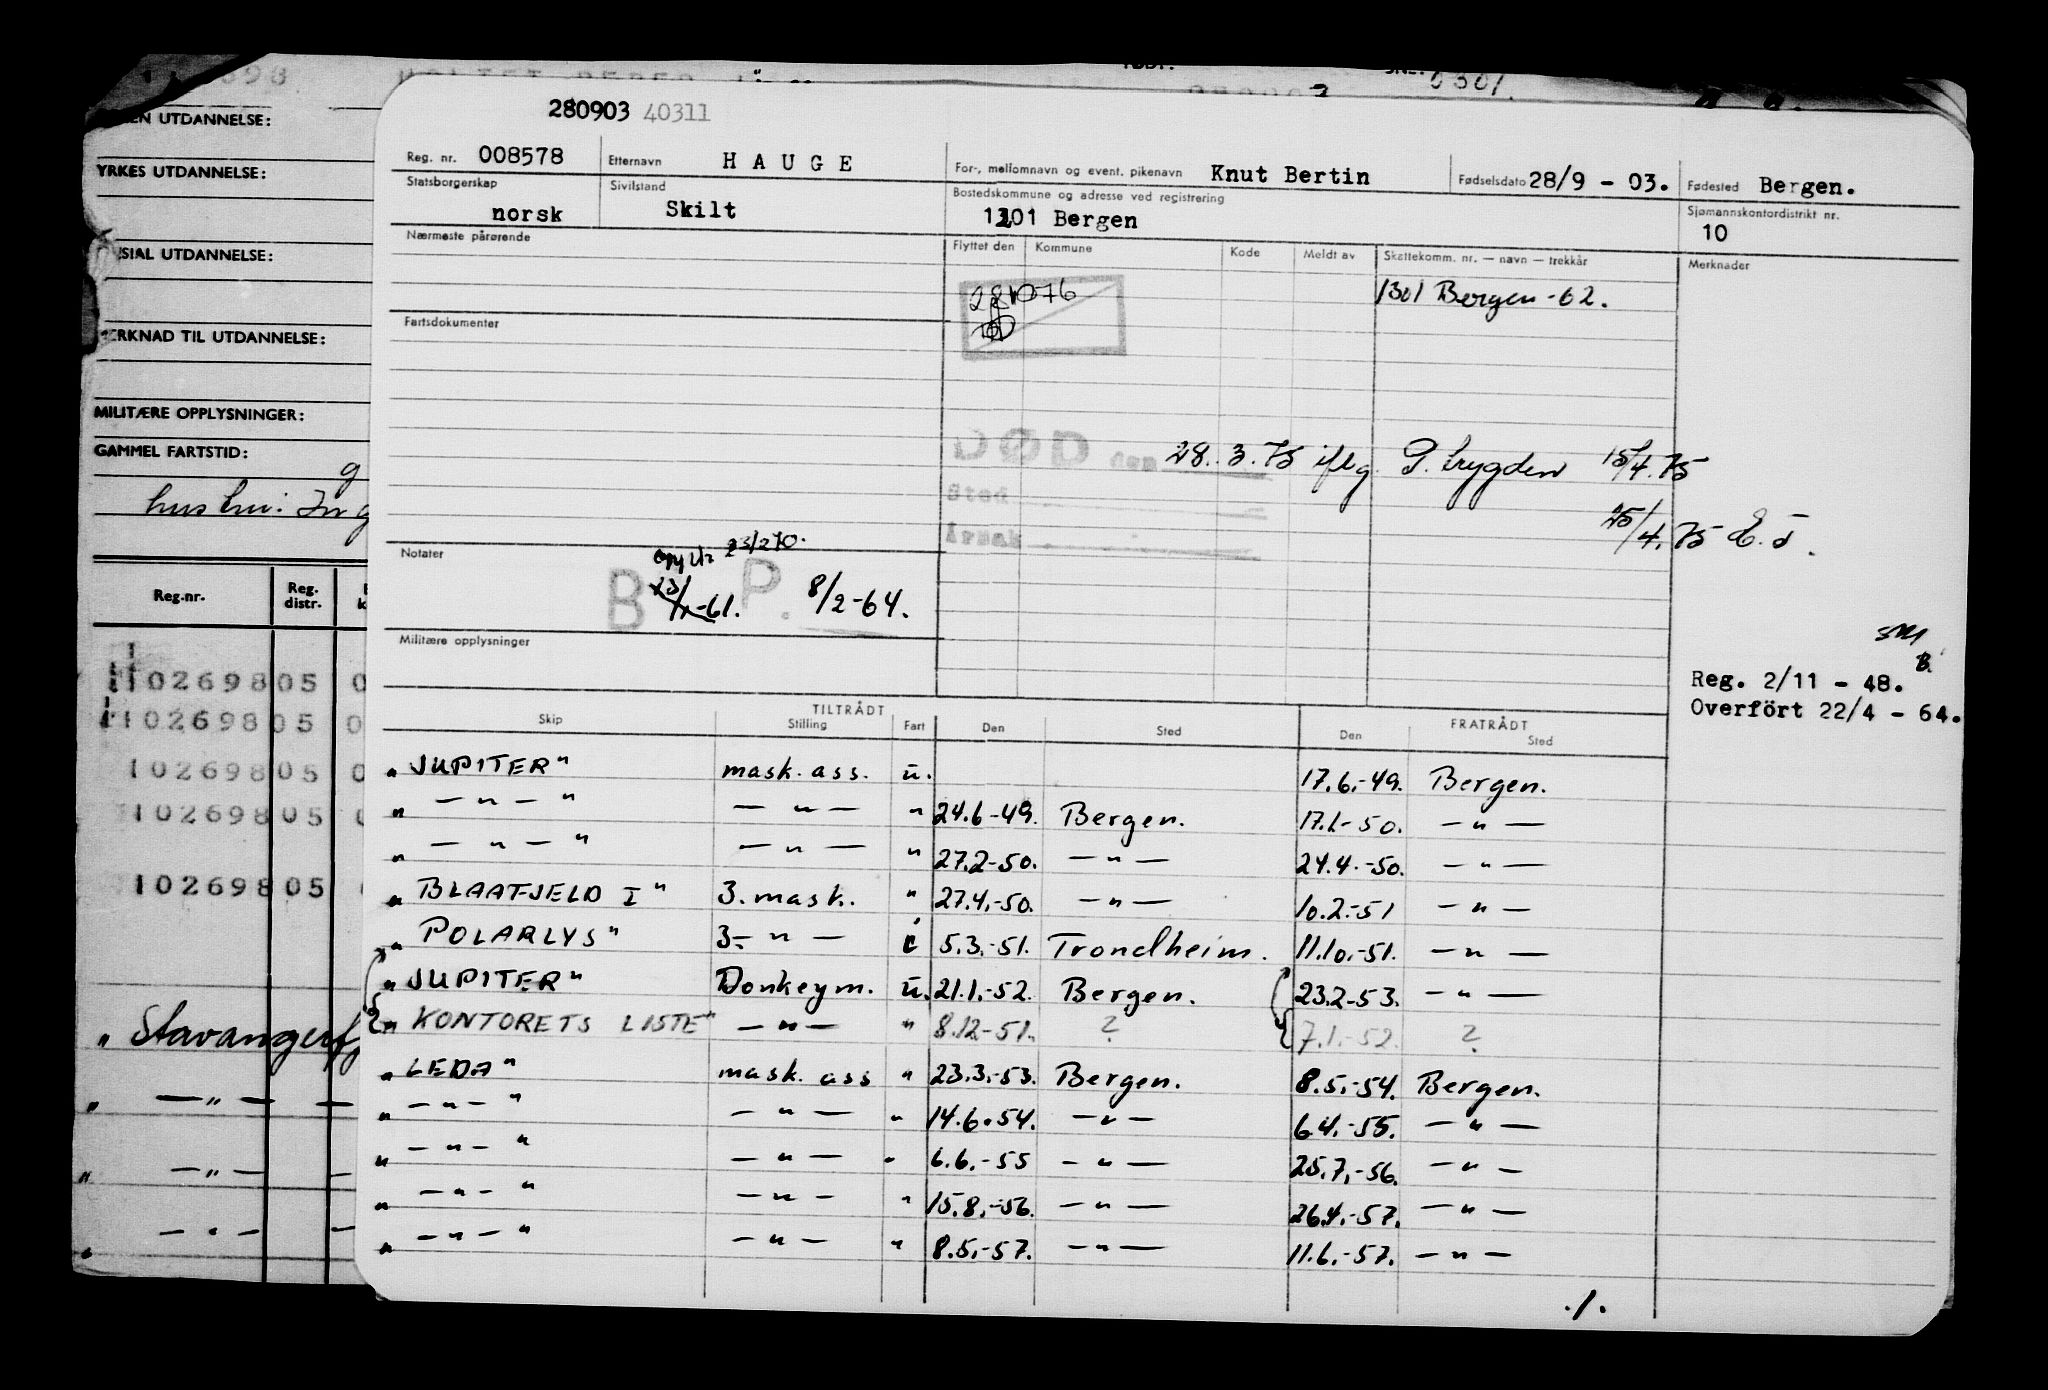 280903 40311
Reg. nr. 008578 Etternavn HAUGE For-, mellomnavn og event. pikenavn Knut Bertin Fødselsdato 28/9 - 03. Fødested Bergen.
Statsborgerskap norsk Sivilstand Skilt Bostedskommune og adresse ved registrering 1301 Bergen Sjømannskontordistrikt nr. 10
Nærmeste pårørende Flyttet den Kommune Kode Meldt av Skattekomm. nr. — navn — trekkår Merknader
1301 Bergen -62.
Fartsdokumenter
DØD den 28. 3. 75 iflg. P. trygden 15/4.75
Sted
Årsak
25/4.75 E. T.
Notater
23/2 70.
B P. 23/1-61. 8/2-64.
Militære opplysninger
Reg. 2/11 - 48.
Overført 22/4 - 64.
TILTRÅDT FRATRÅDT
Skip Stilling Fart Den Sted Den Sted
"JUPITER" mask. ass. u. 17.6.-49. Bergen.
" — " — " — " — " 24.6-49. Bergen. 17.1-50. — " —
" — " — " — " — " 27.2-50. — " — 24.4.-50. — " —
"BLAAFJELD I" 3. mask. " 27.4.-50. — " — 10.2.-51 — " —
"POLARLYS" 3. — " — i 5.3.-51. Trondheim. 11.10.-51. — " —
"JUPITER" Donkeym. u. 21.1.-52. Bergen. 23.2-53. — " —
"KONTORETS LISTE" — " — " 8.12-51. ? 7.1.-52. ?
"LEDA" mask. ass " 23.3.-53. Bergen. 8.5.-54. Bergen.
" — " — " — " — " 14.6.54. — " — 6.4.-55. — " —
" — " — " — " — " 6.6.-55 — " — 25.7.-56. — " —
" — " — " — " — " 15.8.-56. — " — 26.4.-57. — " —
" — " — " — " — " 8.5.-57. — " — 11.6.-57. — " —
./.
UTDANNELSE:
YRKES UTDANNELSE:
UTDANNELSE:
TIL UTDANNELSE:
MILITÆRE OPPLYSNINGER:
GAMMEL FARTSTID:
Reg.nr. Reg. distr.
11026980 5 0
11026980 5 0
1026980 5 0
1026980 5
1026980 5
" — " —
" — " —
" — " —